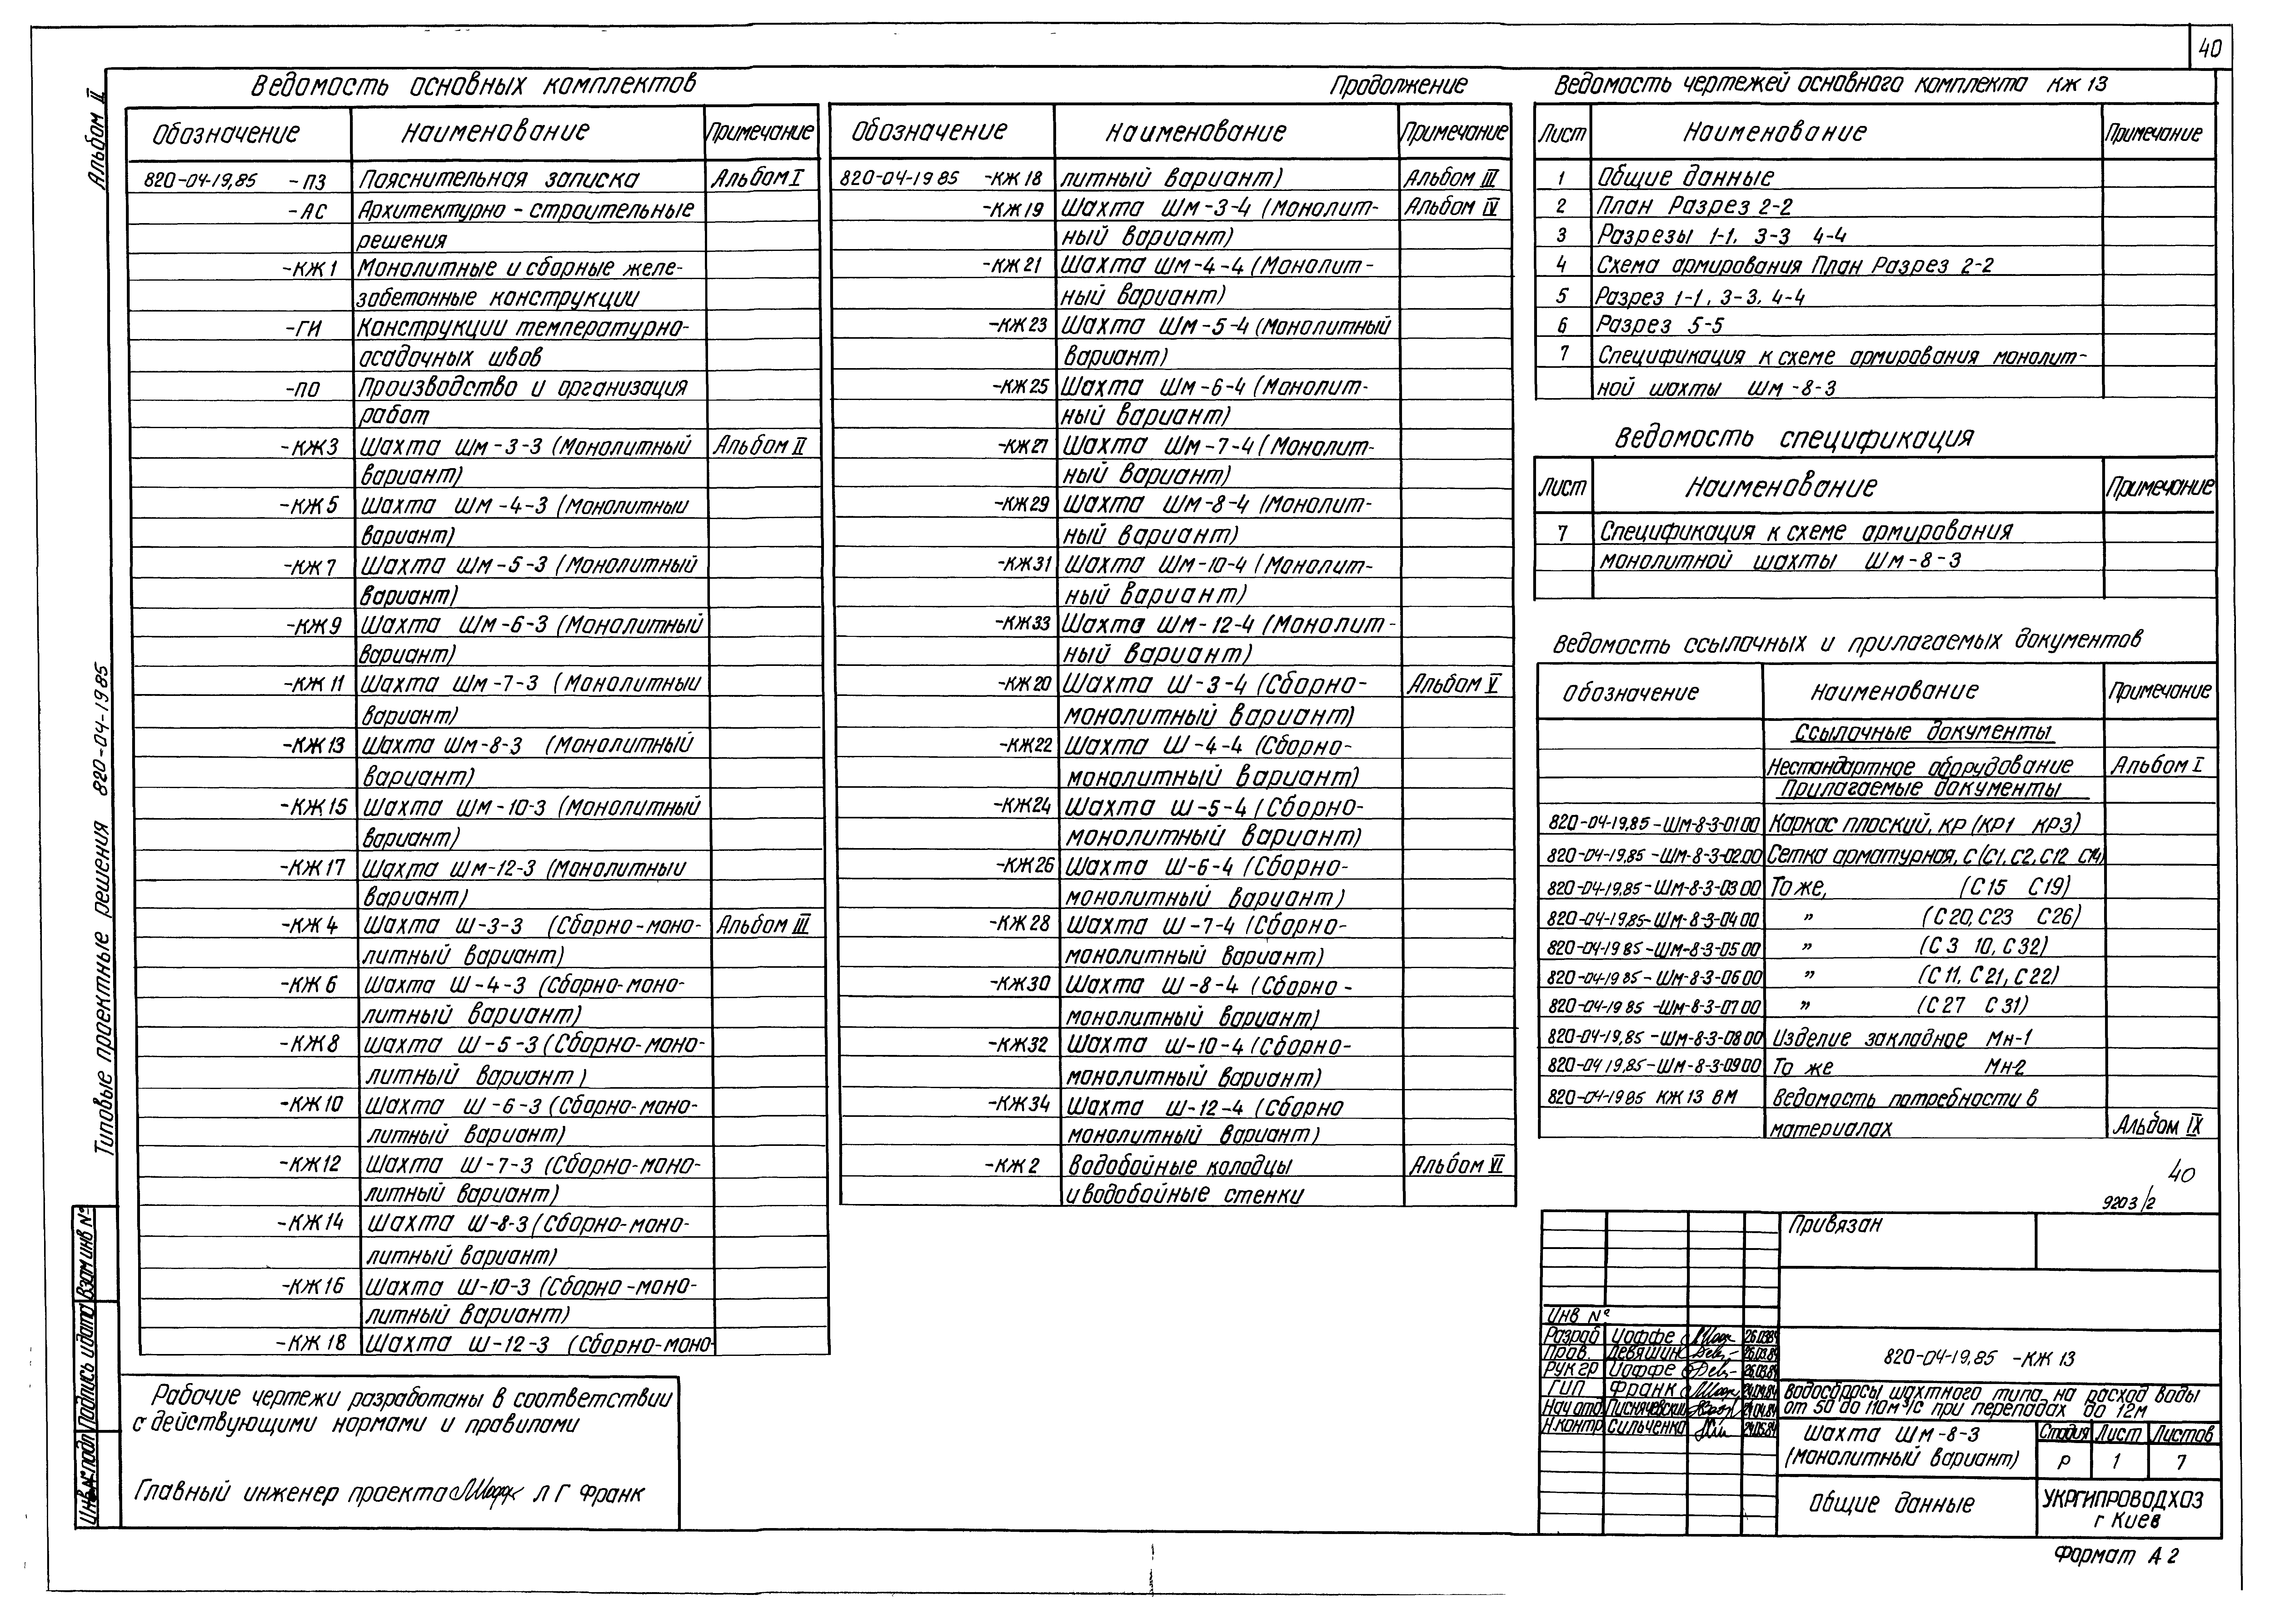 40
Альбом II
Типовые проектные решения 820-04-19.85
Ведомость основных комплектов
Обозначение Наименование Примечание
820-04-19.85 -ПЗ Пояснительная записка Альбом I
-АС Архитектурно-строительные
решения
-КЖ 1 Монолитные и сборные желе-
забетонные конструкции
-ГИ Конструкции температурно-
осадочных швов
-ПО Производство и организация
работ
-КЖ3 Шахта Шм-3-3 (Монолитный Альбом II
вариант)
-КЖ 5 Шахта Шм-4-3 (Монолитный
вариант)
-КЖ 7 Шахта Шм-5-3 (Монолитный
вариант)
-КЖ 9 Шахта Шм-6-3 (Монолитный
вариант)
-КЖ 11 Шахта Шм-7-3 (Монолитный
вариант)
-КЖ 13 Шахта Шм-8-3 (Монолитный
вариант)
-КЖ 15 Шахта Шм-10-3 (Монолитный
вариант)
-КЖ 17 Шахта Шм-12-3 (Монолитный
вариант)
-КЖ 4 Шахта Ш-3-3 (Сборно-моно- Альбом III
литный вариант)
-КЖ 6 Шахта Ш-4-3 (Сборно-моно-
литный вариант)
-КЖ 8 Шахта Ш-5-3 (Сборно-моно-
литный вариант)
-КЖ 10 Шахта Ш-6-3 (Сборно-моно-
литный вариант)
-КЖ12 Шахта Ш-7-3 (Сборно-моно-
литный вариант)
-КЖ 14 Шахта Ш-8-3 (Сборно-моно-
литный вариант)
-КЖ 16 Шахта Ш-10-3 (Сборно-моно-
литный вариант)
-КЖ 18 Шахта Ш-12-3 (Сборно-моно-
Рабочие чертежи разработаны в соответствии
с действующими нормами и правилами
Главный инженер проекта Л Г Франк
Продолжение
Обозначение Наименование Примечание
820-04-19 85 -КЖ 18 литный вариант) Альбом III
-КЖ 19 Шахта Шм-3-4 (Монолит- Альбом IV
ный вариант)
-КЖ 21 Шахта Шм-4-4 (Монолит-
ный вариант)
-КЖ 23 Шахта Шм-5-4 (Монолитный
вариант)
-КЖ 25 Шахта Шм-6-4 (Монолит-
ный вариант)
-КЖ 27 Шахта Шм-7-4 (Монолит-
ный вариант)
-КЖ29 Шахта Шм-8-4 (Монолит-
ный вариант)
-КЖ31 Шахта Шм-10-4 (Монолит-
ный вариант)
-КЖ33 Шахта Шм-12-4 (Монолит-
ный вариант)
-КЖ20 Шахта Ш-3-4 (Сборно- Альбом V
монолитный вариант)
-КЖ22 Шахта Ш-4-4 (Сборно-
монолитный вариант)
-КЖ24 Шахта Ш-5-4 (Сборно-
монолитный вариант)
-КЖ26 Шахта Ш-6-4 (Сборно-
монолитный вариант)
-КЖ 28 Шахта Ш-7-4 (Сборно-
монолитный вариант)
-КЖ30 Шахта Ш-8-4 (Сборно-
монолитный вариант)
-КЖ32 Шахта Ш-10-4 (Сборно-
монолитный вариант)
-КЖ34 Шахта Ш-12-4 (Сборно
монолитный вариант)
-КЖ 2 Водобойные колодцы Альбом VI
и водобойные стенки
Ведомость чертежей основного комплекта КЖ 13
Лист Наименование Примечание
1 Общие данные
2 План Разрез 2-2
3 Разрезы 1-1, 3-3 4-4
4 Схема армирования План Разрез 2-2
5 Разрез 1-1, 3-3, 4-4
6 Разрез 5-5
7 Спецификация к схеме армирования монолит-
ной шахты Шм-8-3
Ведомость спецификация
Лист Наименование Примечание
7 Спецификация к схеме армирования
монолитной шахты Шм-8-3
Ведомость ссылочных и прилагаемых документов
Обозначение Наименование Примечание
Ссылочные документы
Нестандартное оборудование Альбом I
Прилагаемые документы
820-04-19.85-Шм-8-3-01 00 Каркас плоский, КР (КР1 КР3)
820-04-19.85-Шм-8-3-02.00 Сетка арматурная, С (С1, С2, С12 С14)
820-04-19.85-Шм-8-3-03 00 То же, (С 15 С 19)
820-04-19.85-Шм-8-3-04 00 " (С 20, С23 С26)
820-04-19 85-Шм-8-3-05 00 " (С 3 10, С 32)
820-04-19 85-Шм-8-3-06 00 " (С 11, С 21, С 22)
820-04-19 85-Шм-8-3-07 00 " (С 27 С 31)
820-04-19.85-Шм-8-3-08 00 Изделие закладное Мн-1
820-04 19.85-Шм-8-3-09 00 То же Мн-2
820-04-19 85 КЖ 13 ВМ Ведомость потребности в
материалах Альбом IX
40
9203/2
Привязан
Инв №
Разраб Иоффе 26.03.84
Пров. Девяшин 26.03.84
Рук гр Иоффе 26.03.84
ГИП Франк 24.04.84
Нач отд 24.04.84
Н.контр Сильченко 24.05.84
820-04-19.85 -КЖ 13
Водосбросы шахтного типа на расход воды
от 50 до 110 м³/с при перепадах до 12м
Шахта Шм-8-3
(монолитный вариант)
Стадия Лист Листов
Р 1 7
Общие данные
УКРГИПРОВОДХОЗ
г Киев
Формат А 2
Инв.№ подл Подпись и дата Взам инв №